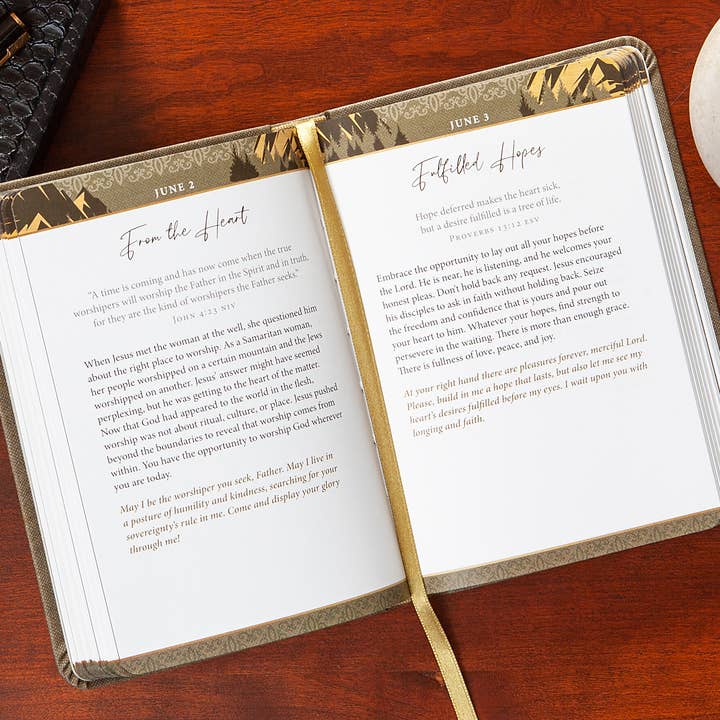 JUNE 2
From the Heart
“A time is coming and has now come when the true
worshipers will worship the Father in the Spirit and in truth,
for they are the kind of worshipers the Father seeks.”
JOHN 4:23 NIV
When Jesus met the woman at the well, she questioned him
about the right place to worship. As a Samaritan woman,
her people worshipped on a certain mountain and the Jews
worshipped on another. Jesus’ answer might have seemed
perplexing, but he was getting to the heart of the matter.
Now that God had appeared to the world in the flesh,
worship was not about ritual, culture, or place. Jesus pushed
beyond the boundaries to reveal that worship comes from
within. You have the opportunity to worship God wherever
you are today.
May I be the worshiper you seek, Father. May I live in
a posture of humility and kindness, searching for your
sovereignty’s rule in me. Come and display your glory
through me!
JUNE 3
Fulfilled Hopes
Hope deferred makes the heart sick,
but a desire fulfilled is a tree of life.
PROVERBS 13:12 ESV
Embrace the opportunity to lay out all your hopes before
the Lord. He is near, he is listening, and he welcomes your
honest pleas. Don’t hold back any request. Jesus encouraged
his disciples to ask in faith without holding back. Seize
the freedom and confidence that is yours and pour out
your heart to him. Whatever your hopes, find strength to
persevere in the waiting. There is more than enough grace.
There is fullness of love, peace, and joy.
At your right hand there are pleasures forever, merciful Lord.
Please, build in me a hope that lasts, but also let me see my
heart’s desires fulfilled before my eyes. I wait upon you with
longing and faith.